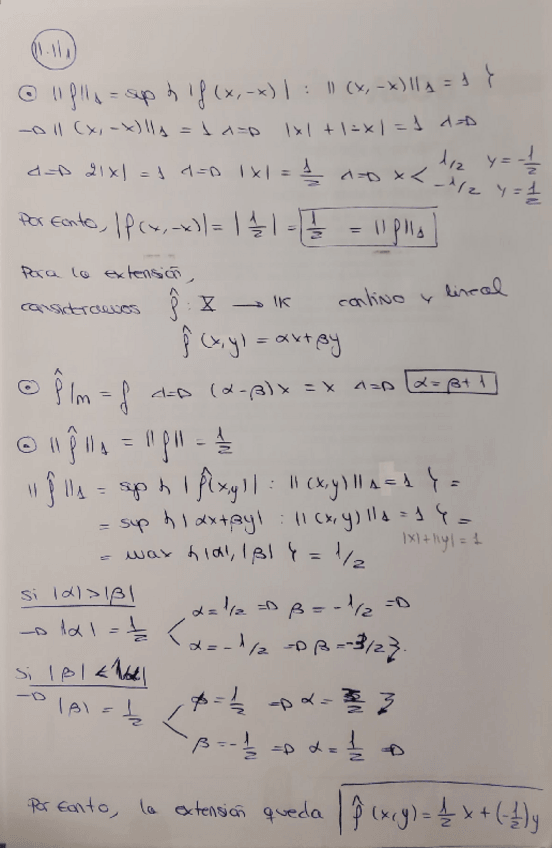 11.11₁
⊙ ||f||₁ = sup { |f(x,-x)| : ||(x,-x)||₁ = 1 }
→ ||(x,-x)||₁ = 1 ⇔ |x|+|-x| = 1 ⇔
⇔ 2|x| = 1 ⇔ |x| = 1/2 ⇔ x < 1/2 y = -1/2
-1/2 y = 1/2
Por tanto, |f(x,-x)| = |1/2| = 1/2 = ||f||₁
Para la extensión,
consideramos f̂ : X → K continuo y lineal
f̂(x,y) = αx+βy
⊙ f̂|m = f ⇔ (α-β)x = x ⇔ α = β+1
⊙ ||f̂||₁ = ||f|| = 1/2
||f̂||₁ = sup { |f̂(x,y)| : ||(x,y)||₁ = 1 } =
= sup { |αx+βy| : ||(x,y)||₁ = 1 } =
|x|+|y| = 1
= max { |α|, |β| } = 1/2
Si |α|>|β|
→ |α| = 1/2 < α = 1/2 ⇒ β = -1/2 ⇒
α = -1/2 ⇒ β = -3/2 }.
Si |β| < |α|
→ |β| = 1/2 < β = 1/2 ⇒ α = 3/2 }
β = -1/2 ⇒ α = 1/2 ⇒
Por tanto, la extensión queda f̂(x,y) = 1/2 x + (-1/2)y